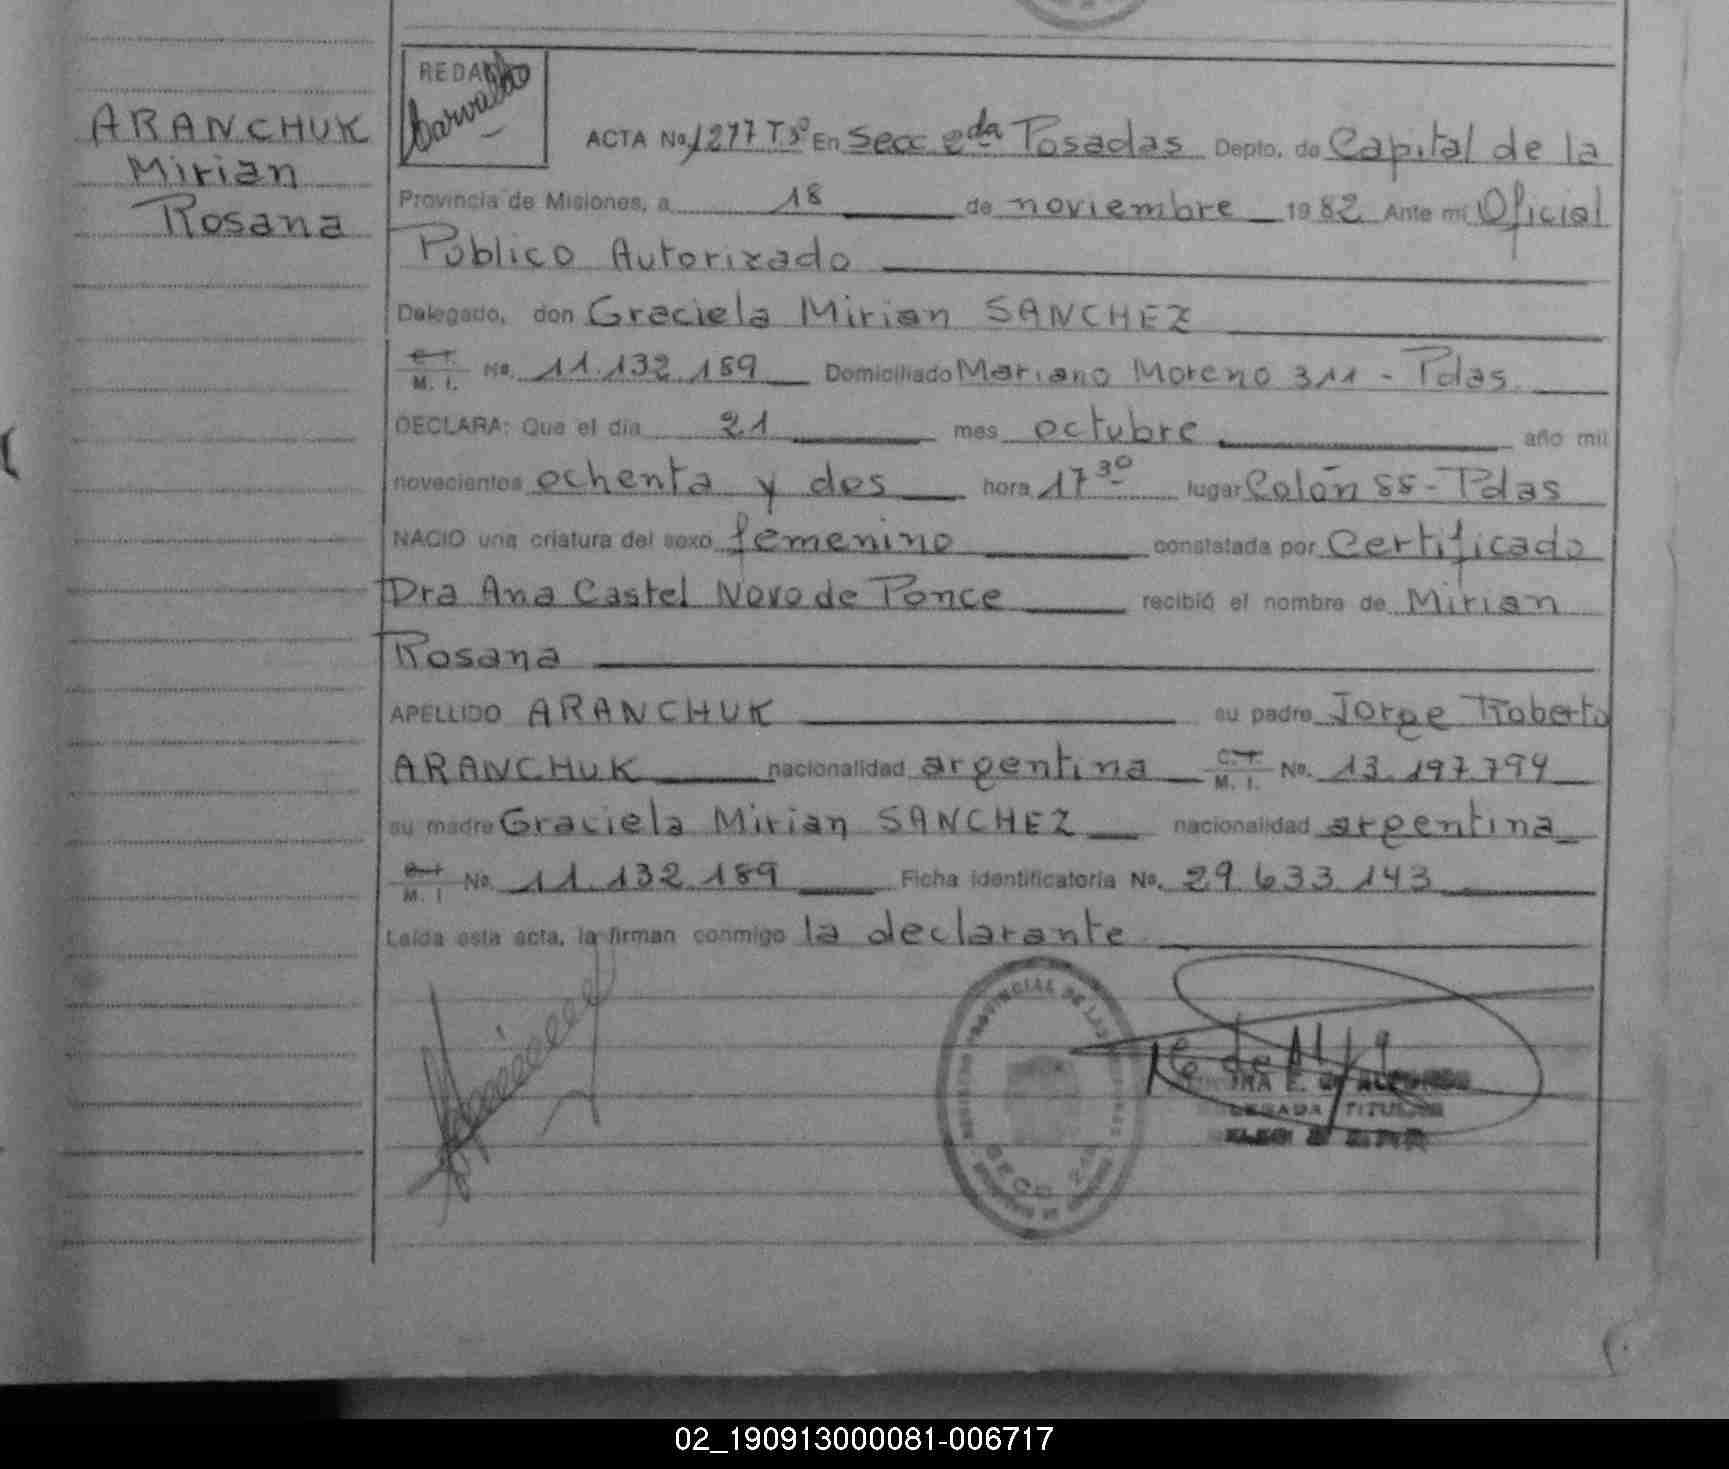 ARANCHUK
Mirian
Rosana
REDA
Carvallo
ACTA No. 1277 T3º En Secc 2da Posadas Depto. de Capital de la
Provincia de Misiones, a 18 de noviembre 1982 Ante mi Oficial
Público Autorizado
Delegado, don Graciela Mirian SANCHEZ
C. I.
M. I. No. 11.132.189 Domiciliado Mariano Moreno 311 - Pdas
DECLARA: Que el día 21 mes octubre año mil
novecientos ochenta y dos hora 17 30 lugar Colón 55 - Pdas
NACIO una criatura del sexo femenino constatada por Certificado
Dra Ana Castel Novo de Ponce recibió el nombre de Mirian
Rosana
APELLIDO ARANCHUK su padre Jorge Roberto
ARANCHUK nacionalidad argentina C. I. M. I. No. 13.197.794
su madre Graciela Mirian SANCHEZ nacionalidad argentina
M. I No. 11.132.189 Ficha identificatoria No. 29.633.143
Leída esta acta, la firman conmigo la declarante
PROVINCIAL DE LAS
SECC 2da
DELEGADA TITULAR
02_190913000081-006717